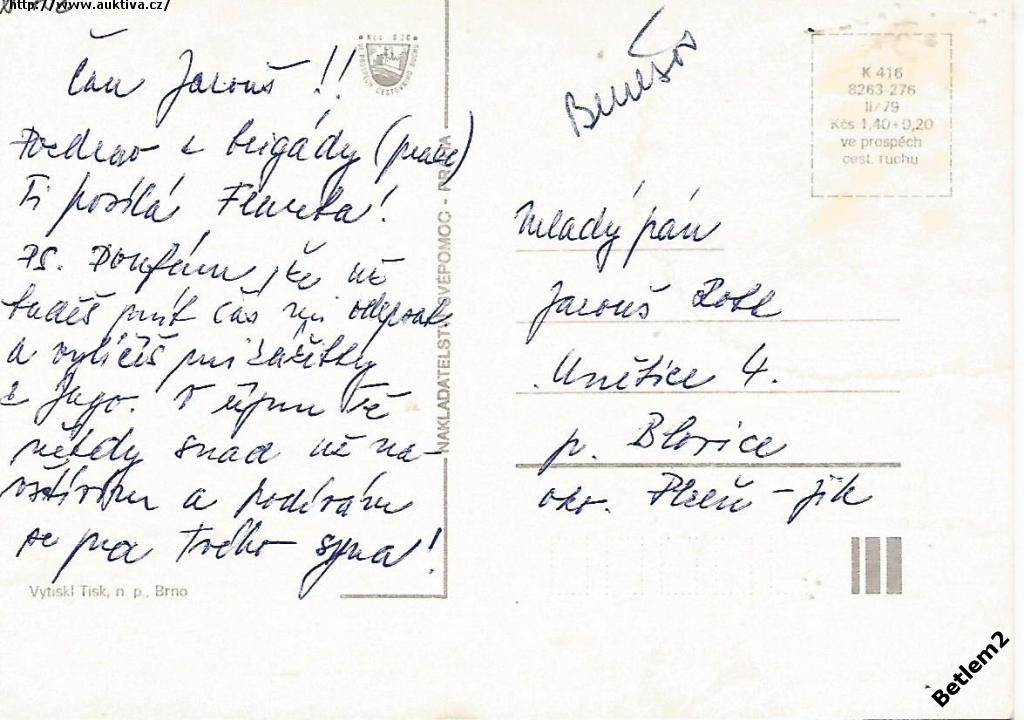 http://www.auktiva.cz/
Čau Jarouš!!
Pozdrav z brigády (práce)
Ti posílá
PS. Doufám, že už
budeš mít čas mi odepsat
a vylíčíš mi zážitky
z Jugo. V říjnu Tě
někdy snad už na-
vštívím a podívám
se na Tvého syna!
Vytiskl Tisk, n. p., Brno
Kčs 0,20
VE PROSPĚCH CESTOVNÍHO RUCHU
NAKLADATELSTVÍ SVÉPOMOC - PRAHA
Benešov
K 416
8263-276
II/79
Kčs 1,40+0,20
ve prospěch
cest. ruchu
Mladý pán
Jarouš
Unětice 4.
p. Blovice
okr. Plzeň - jih
Betlem2